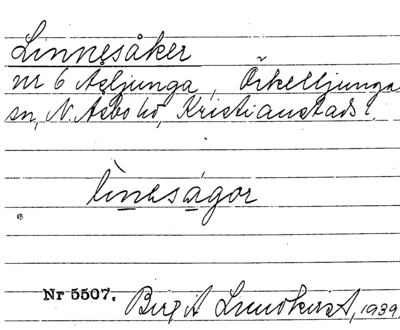 Linnesåker
nr 6 Åsljunga, Örkelljunga
sn, N. Åsbo hd, Kristianstads l.
lìnesågor
Nr 5507. Birgit Lundkvist, 1939